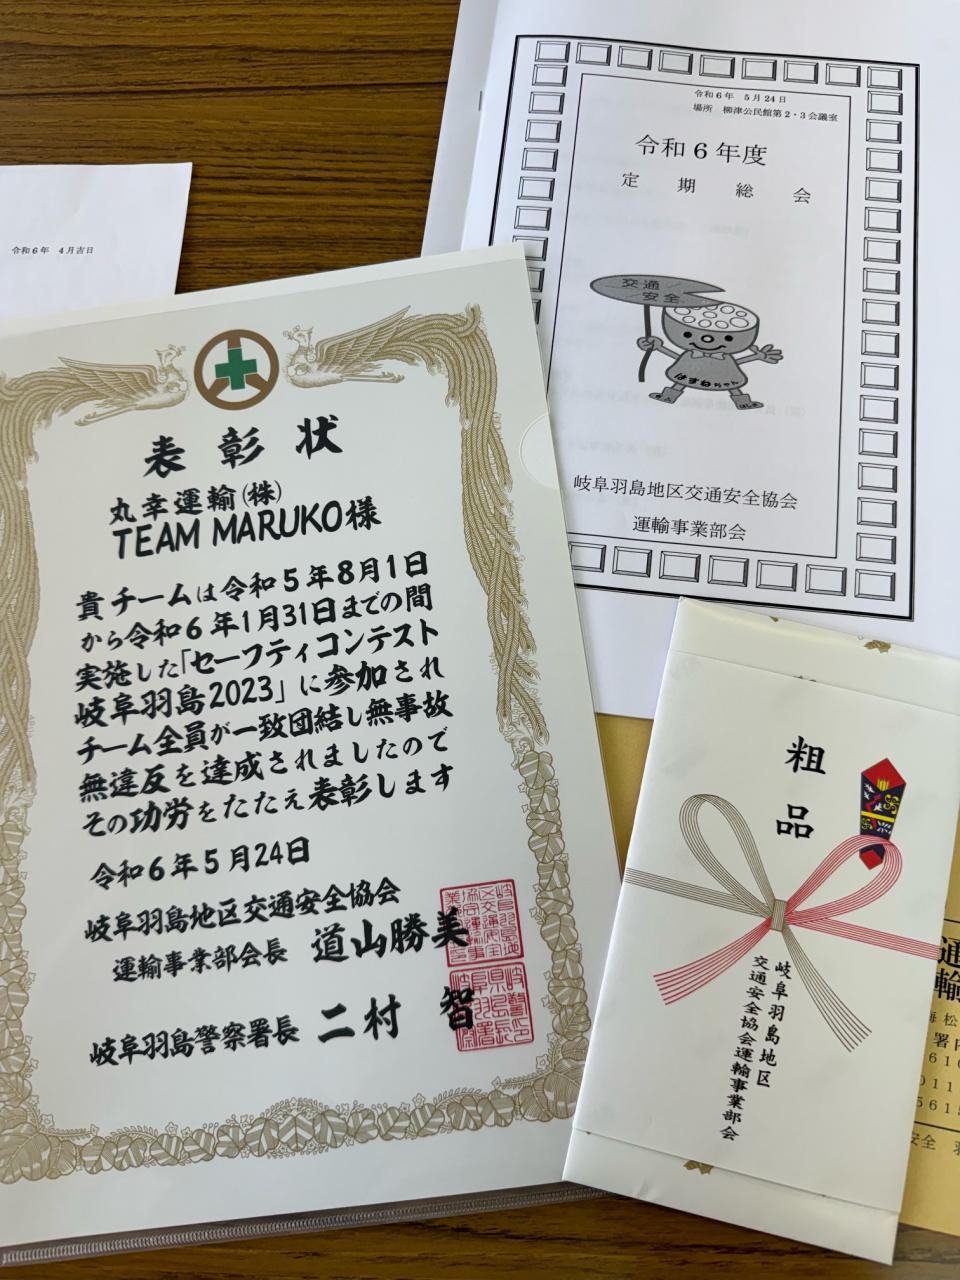 令和6年 5月24日
場所 柳津公民館第2・3会議室
令和6年度
定期総会
交通
安全
はすねちゃん
岐阜羽島地区交通安全協会
運輸事業部会
令和6年 4月吉日
表彰状
丸幸運輸(株)
TEAM MARUKO様
貴チームは令和5年8月1日
から令和6年1月31日までの間
実施した「セーフティコンテスト
岐阜羽島2023」に参加され
チーム全員が一致団結し無事故
無違反を達成されましたので
その功労をたたえ表彰します
令和6年5月24日
岐阜羽島地区交通安全協会
運輸事業部会長 道山勝美
岐阜羽島警察署長 二村 智
粗品
岐阜羽島地区
交通安全協会運輸事業部会
通
輸
海松
署内
616
011
5615
安全